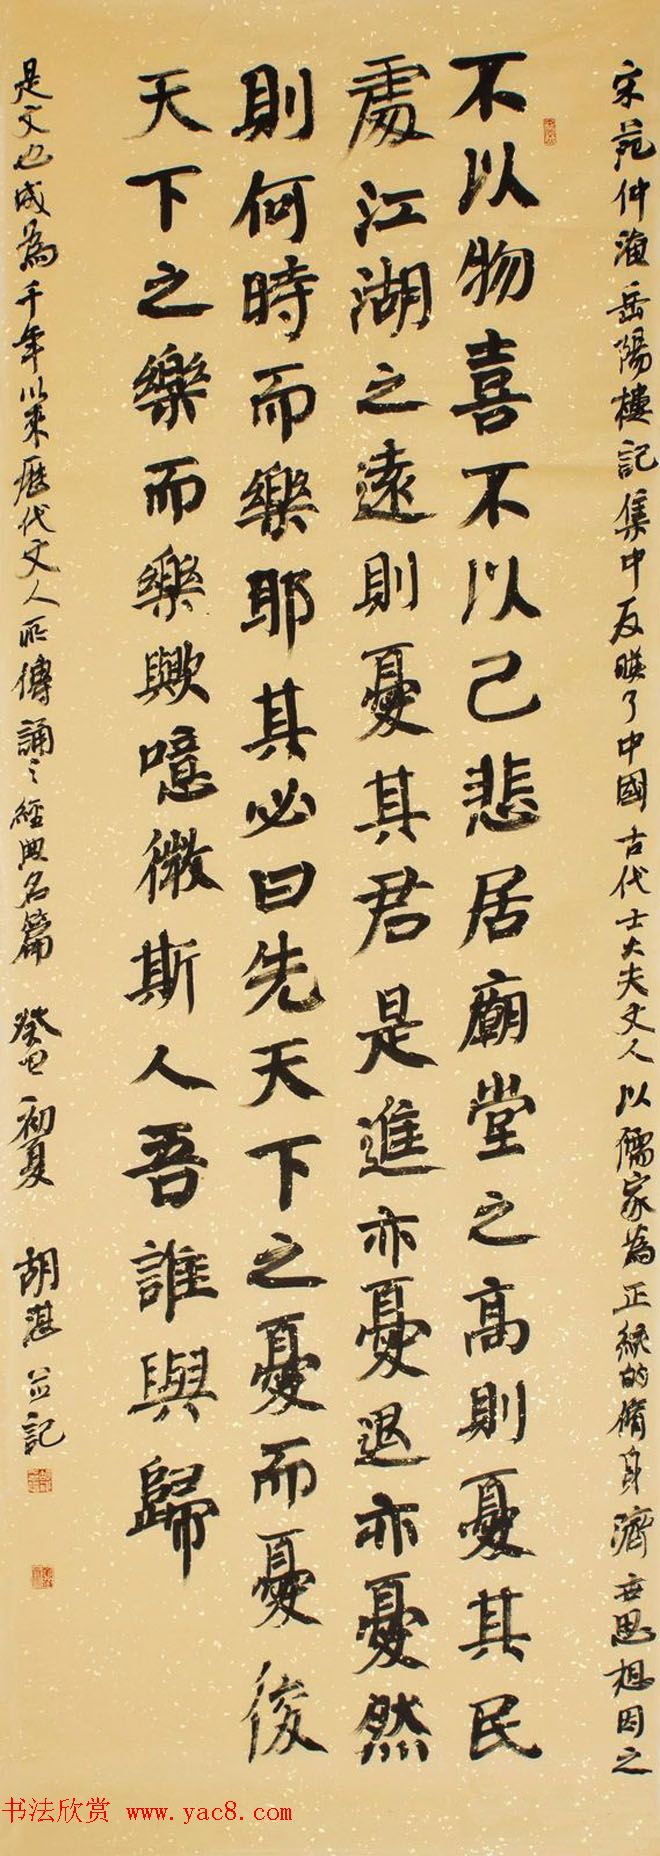 宋范仲淹岳陽樓記集中反映了中國古代士大夫文人以儒家為正統的脩身濟世思想因之
不以物喜不以己悲居廟堂之高則憂其民
處江湖之遠則憂其君是進亦憂退亦憂然
則何時而樂耶其必曰先天下之憂而憂後
天下之樂而樂歟噫微斯人吾誰與歸
是文也成為千年以來歷代文人所傳誦之經典名篇 癸巳初夏 胡湛並記
书法欣赏 www.yac8.com